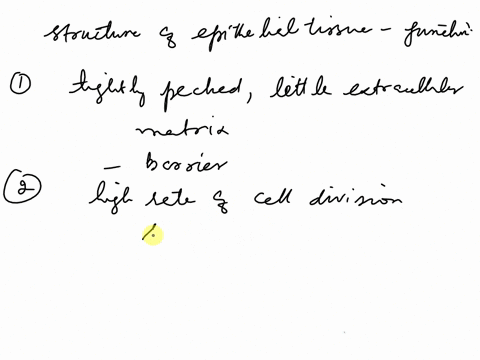 structure of epithelial tissue - function
① tightly packed, little extracellular
matrix
- barrier
② high rate of cell division